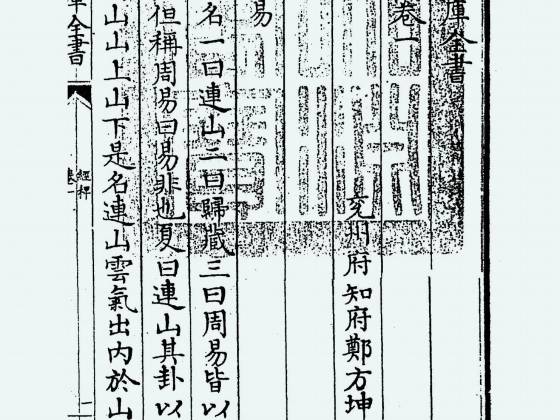 庫全書
卷一
兖州府知府鄭方坤
易
名一曰連山二曰歸藏三曰周易皆以
但稱周易曰易非也夏曰連山其卦以
山山上山下是名連山雲氣出内於山
庫全書
經稗
卷一